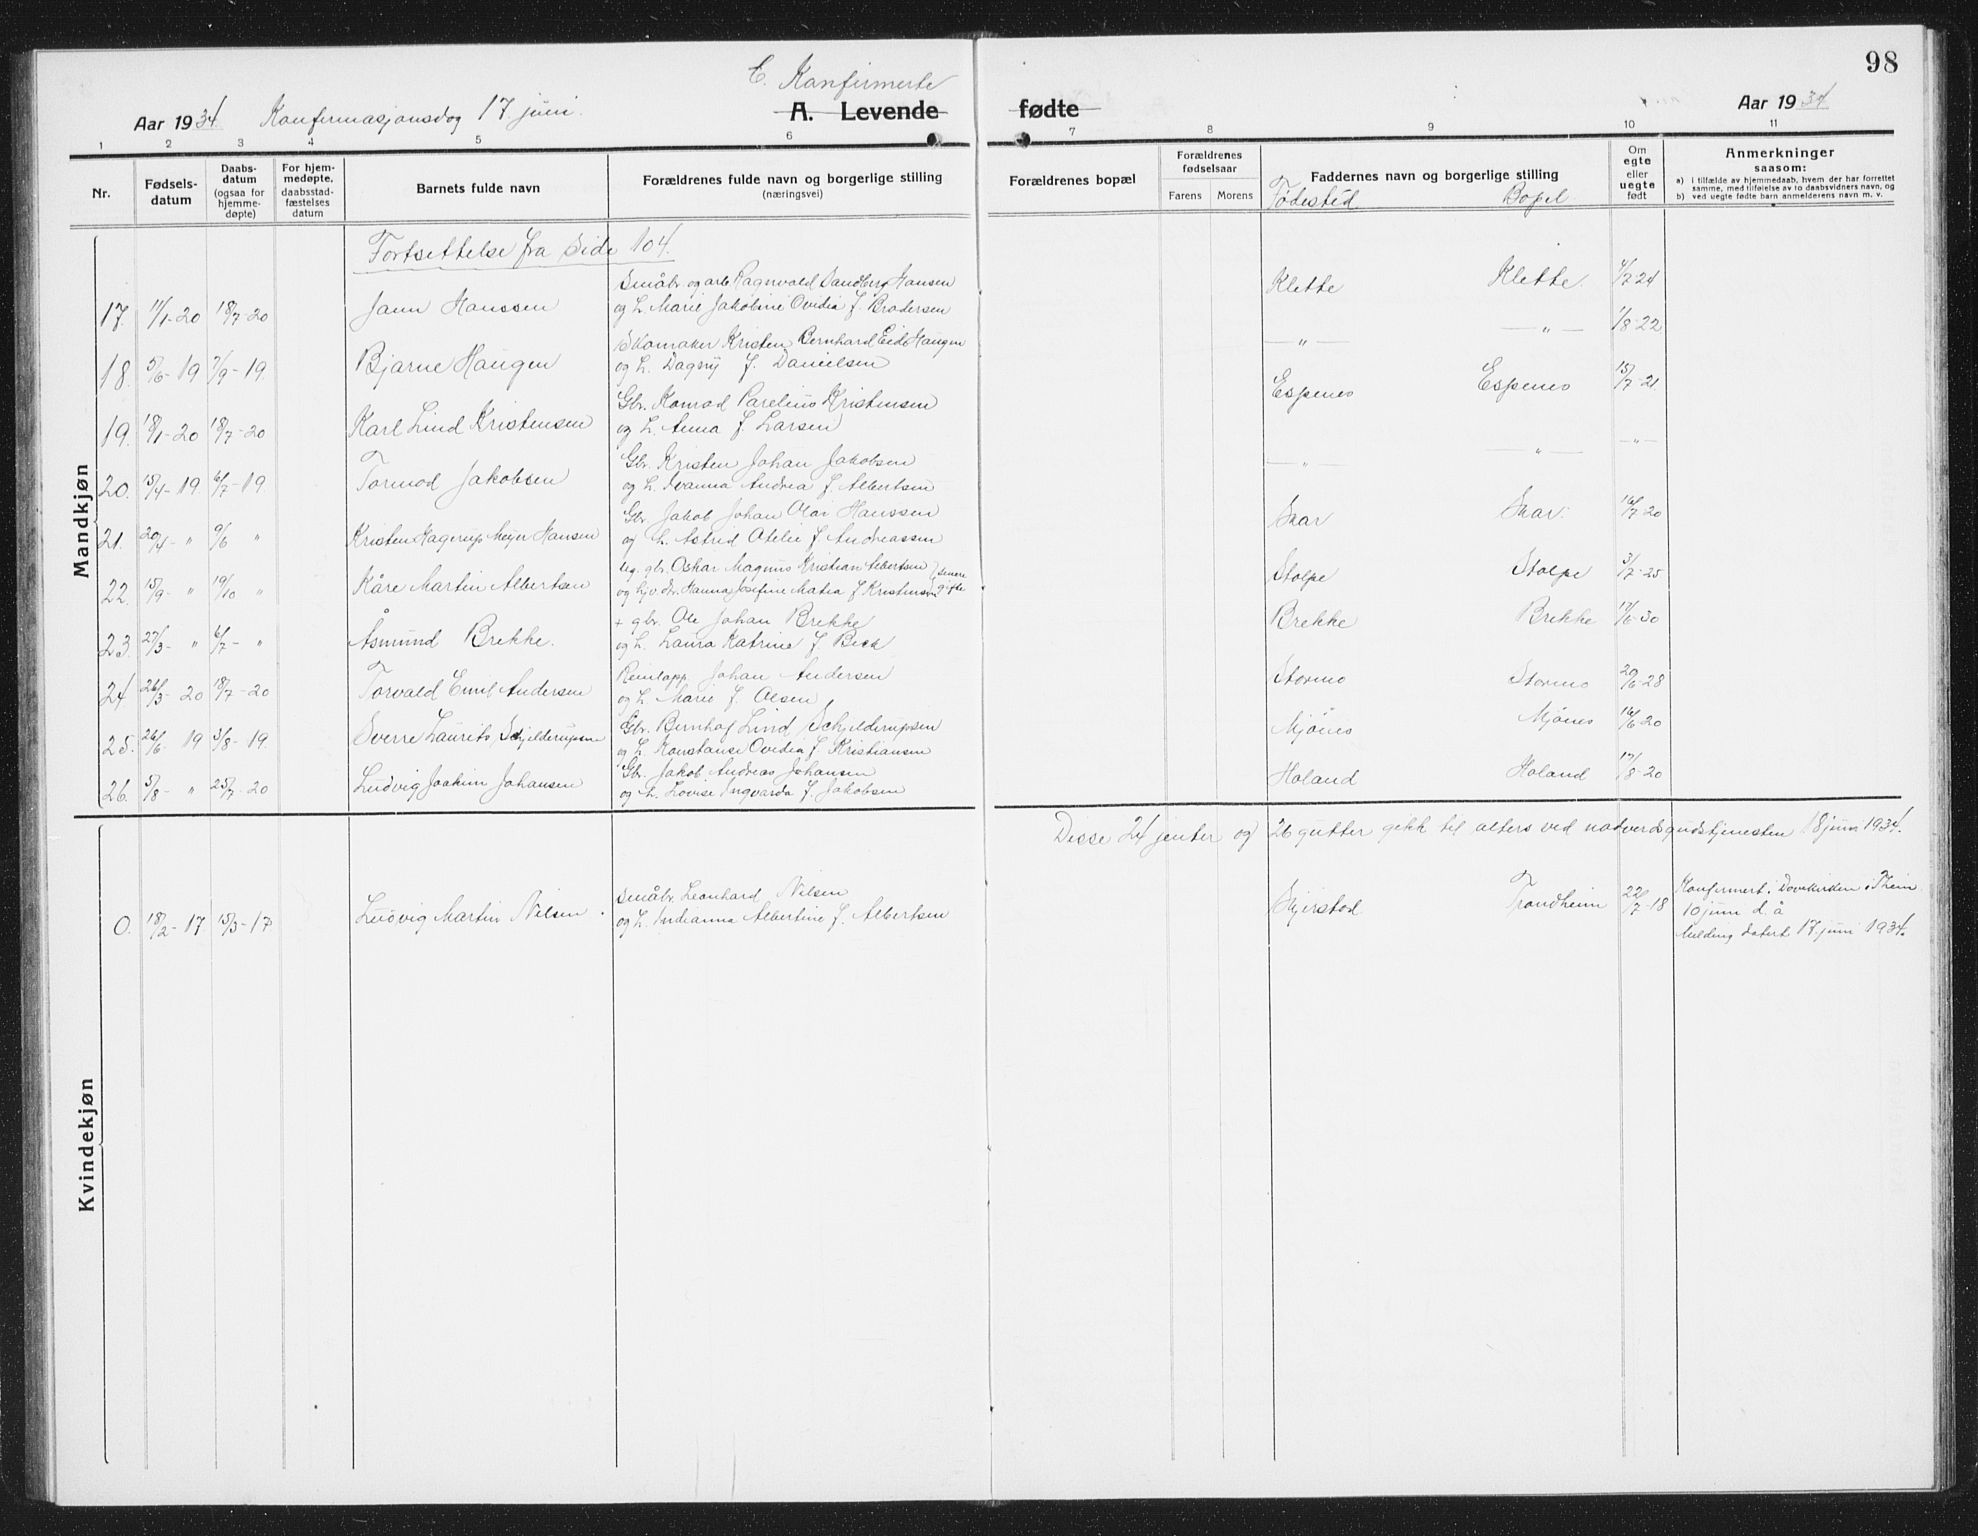 98
C. Konfirmerte
Aar 1934 Konfirmasjonsdag 17. juni. A. Levende fødte Aar 1934
1 2 3 4 5 6 7 8 9 10 11
Nr. Fødsels-datum Daabs-datum (ogsaa for hjemme-døpte) For hjem-medøpte. daabsstad-fæstelses datum Barnets fulde navn Forældrenes fulde navn og borgerlige stilling (næringsvei) Forældrenes bopæl Forældrenes fødselsaar Farens Morens Faddernes navn og borgerlige stilling Om egte eller uegte født Anmerkninger saasom:
a) i tilfælde av hjemmedaab, hvem der har forrettet samme, med tilføielse av to daabsvidners navn, og
b) ved uegte fødte barn anmelderens navn m. v.
Fødested Bopel
Mandkjøn
Fortsettelse fra side 104.
Småbr. og arb. Ragnvald Sandberg Hansen
17. 11/1-20 18/7-20 Jann Hanssen og h. Marie Jakobine Ovidia f. Brodersen Klette Klette. 4/7-24
Skomaker Kristen Bernhard Eide Haugen
18. 5/6-19 7/9-19. Bjarne Haugen og h. Dagny f. Danielsen —„— —„— 1/8-22
Gbr. Konrad Parelius Kristensen
19. 18/1-20 18/7-20 Karl Lind Kristensen og h. Anna f. Larsen Espenes Espenes 15/7-21
Gbr. Kristen Johan Jakobsen
20. 15/4-19. 6/7-19. Tormod Jakobsen og h. Ivanna Andrea f. Albertsen —„— —„— —„—
Gbr. Jakob Johan Olai Hanssen
21. 20/4- „ 9/6 „ Kristen Hagerup Meyer Hansen og h. Astrid Otelie f. Andreassen Skar Skar. 16/7-20
ug. gbr. Oskar Magnus Kristian Albertsen } senere
22. 15/9- „ 19/10 „ Kåre Martin Albertsen og hjv. dr. Hanna Josefine Matea f Kristensen gifte Stolpe Stolpe 3/7-25
+ gbr. Ole Johan Brekke
23. 27/3- „ 6/7- „ Åsmund Brekke. og h. Laura Katrine f Beck Brekke Brekke 17/6-30
Reinlapp. Johan Andersen
24 26/3-20 18/7-20 Torvald Emil Andersen og h. Marie f. Olsen Stormo Stormo 20/6-28
Gbr. Bernhof Lind Schjelderupsen
25. 26/6-19 3/8-19. Sverre Laurits Schjelderupsen og h. Konstanse Ovidia f Kristiansen Mjönes Mjönes 16/6-20
Gbr. Jakob Andreas Johansen
26. 5/8- „ 25/7-20 Ludvig Joakim Johansen og h. Lovise Ingvarda f. Jakobsen Holand Holand 17/8-20
Kvindekjøn
Disse 24 jenter og 26 gutter gikk til alters ved nadverdsgudstjenesten 18 juni 1934.
Småbr. Leonhard Nilsen Konfirmert i Domkirken i Theim.
0. 18/2-17. 15/3-17 Ludvig Martin Nilsen. og h. Indianna Albertine f. Albertsen Skjerstad Trondheim 22/7-18 10 juni d. å
Melding datert 17. juni 1934.